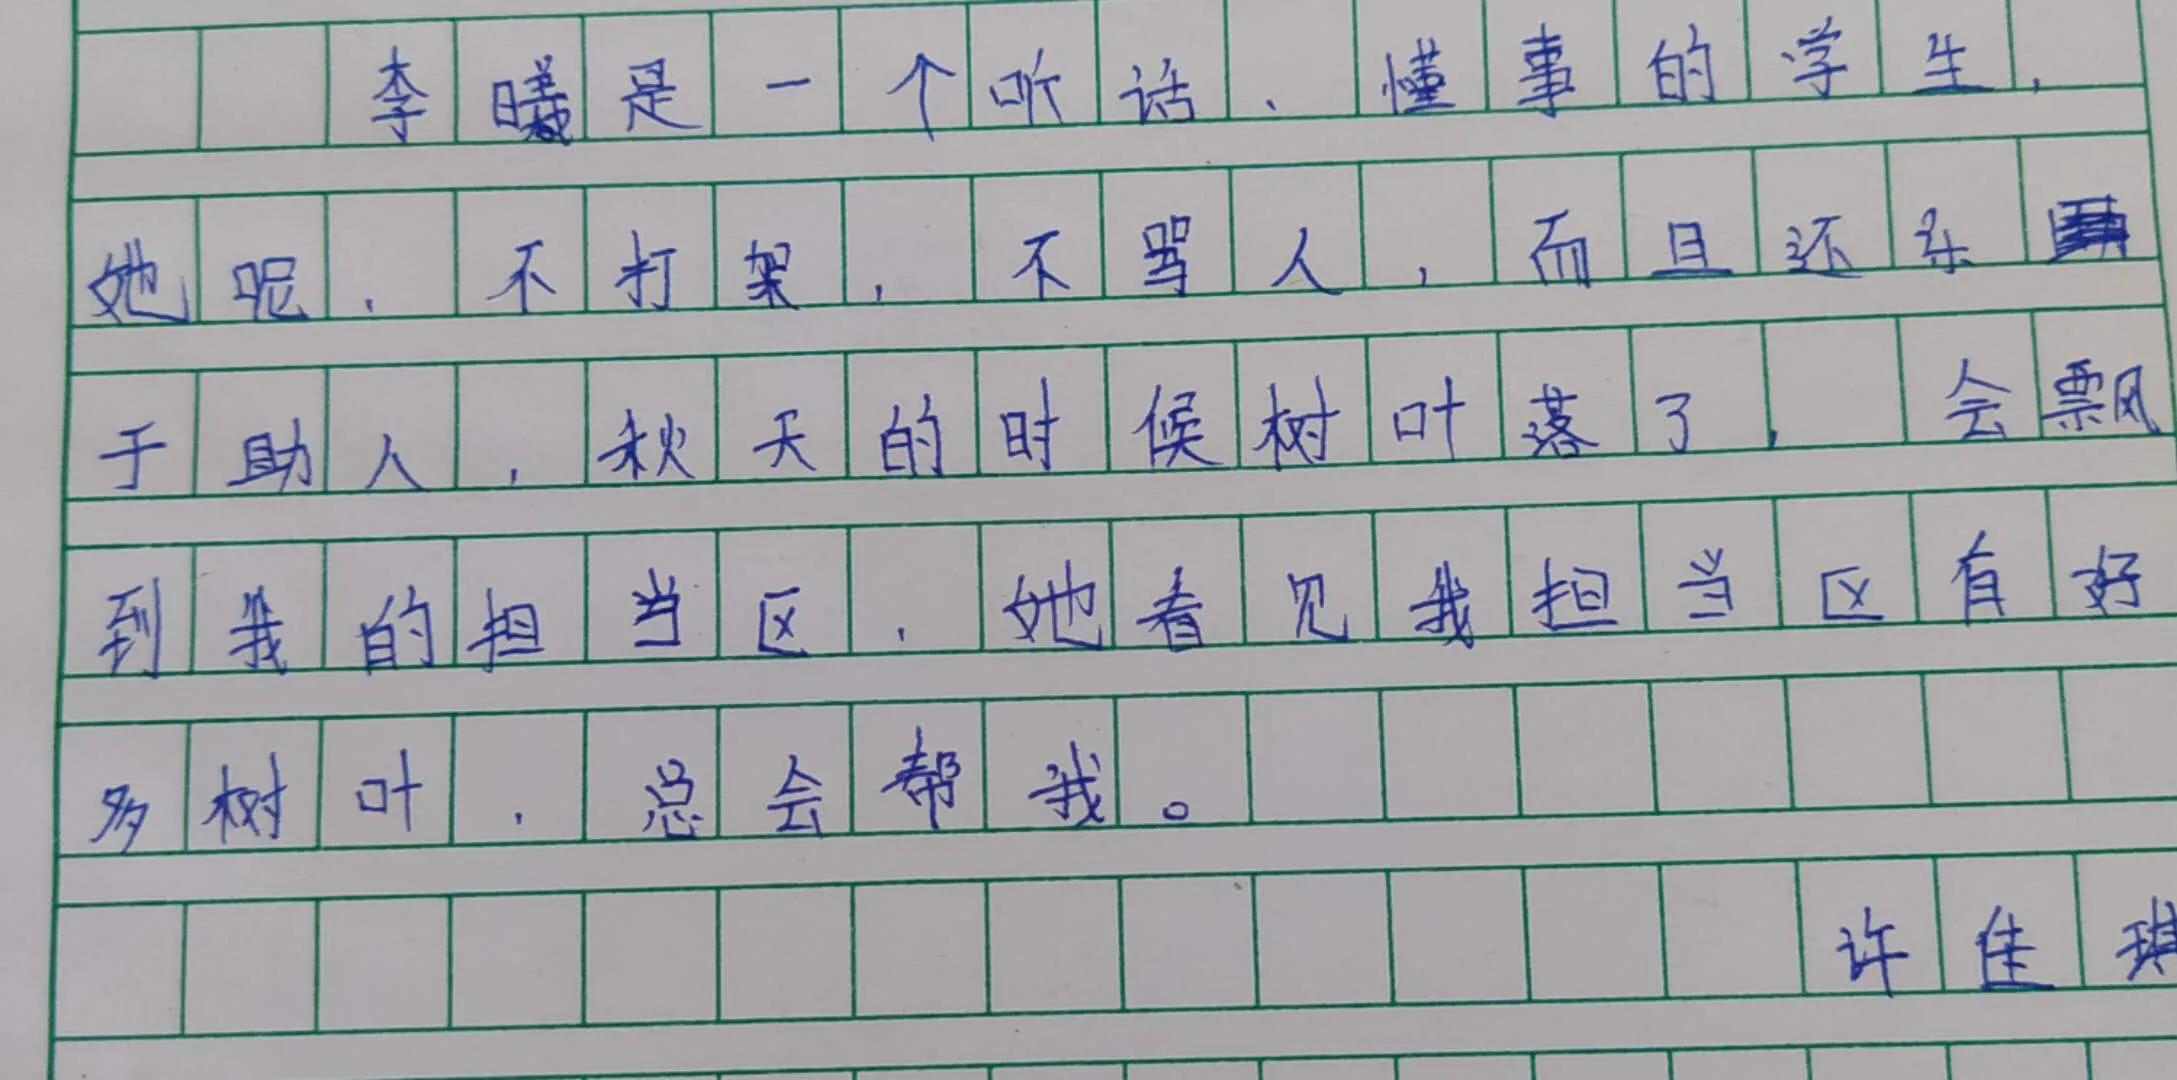 李曦是一个听话、懂事的学生,
她呢,不打架,不骂人,而且还乐
于助人,秋天的时候树叶落了,会飘
到我的担当区,她看见我担当区有好
多树叶,总会帮我。
许佳琪